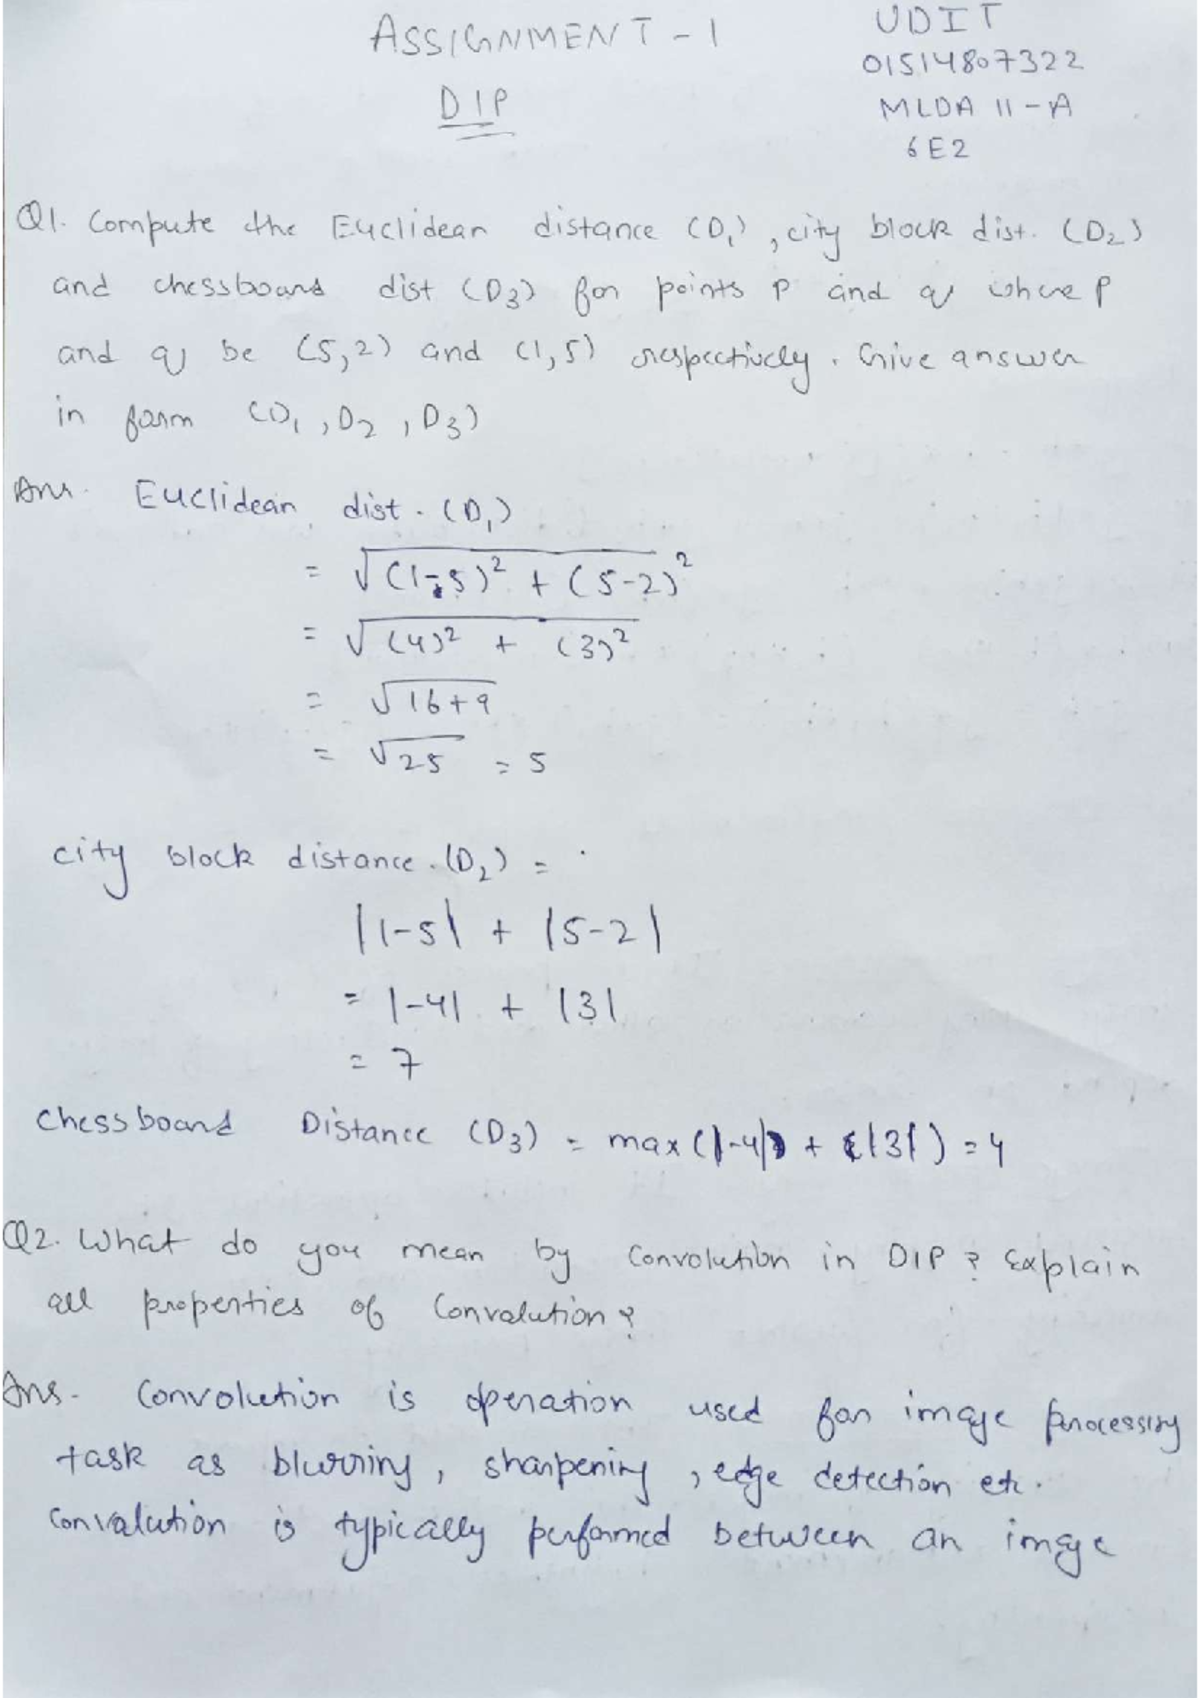 ASSIGNMENT - 1
DIP
UDIT
01514807322
MLDA II - A
6E2
Q1. Compute the Euclidean distance (D₁), city block dist. (D₂)
and chessboard dist (D₃) for points P and q where P
and q be (5,2) and (1,5) respectively. Give answer
in form (D₁, D₂, D₃)
Ans. Euclidean dist. (D₁)
= √(1-5)² + (5-2)²
= √(4)² + (3)²
= √16+9
= √25 = 5
city block distance. (D₂) =
|1-5| + |5-2|
= |-4| + |3|
= 7
Chessboard Distance (D₃) = max(|-4| + |3|) = 4
Q2. What do you mean by Convolution in DIP? Explain
all properties of Convolution?
Ans- Convolution is operation used for image processing
task as blurring, sharpening, edge detection etc.
Convolution is typically performed between an image